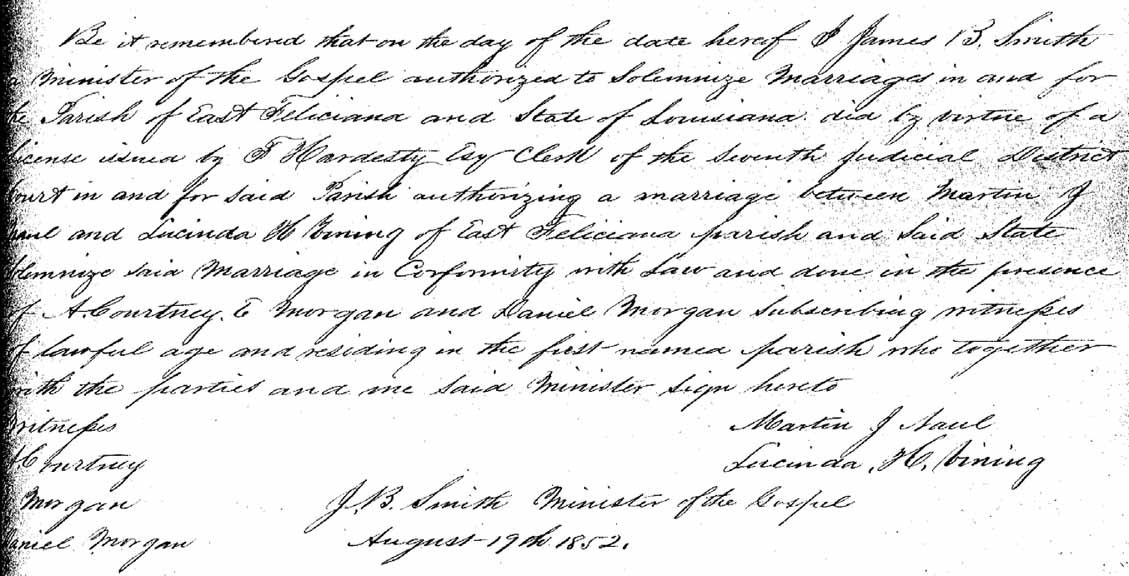 Be it remembered that on the day of the date hereof I James B. Smith
a Minister of the Gospel authorized to Solemnize Marriages in and for
the Parish of East Feliciana and State of Louisiana did by virtue of a
License issued by F Hardesty Esq Clerk of the Seventh Judicial District
Court in and for said Parish authorizing a marriage between Martin J
Naul and Lucinda H Vining of East Feliciana parish and Said State
Solemnize said Marriage in Conformity with Law and done in the presence
of A Courtney. E Morgan and Daniel Morgan Subscribing witnesses
of lawful age and residing in the first named parish who together
with the parties and me said Minister sign hereto
Witness Martin J Naul
A Courtney Lucinda, H, Vining
Morgan J. B. Smith Minister of the Gospel
Daniel Morgan August 19th 1852.